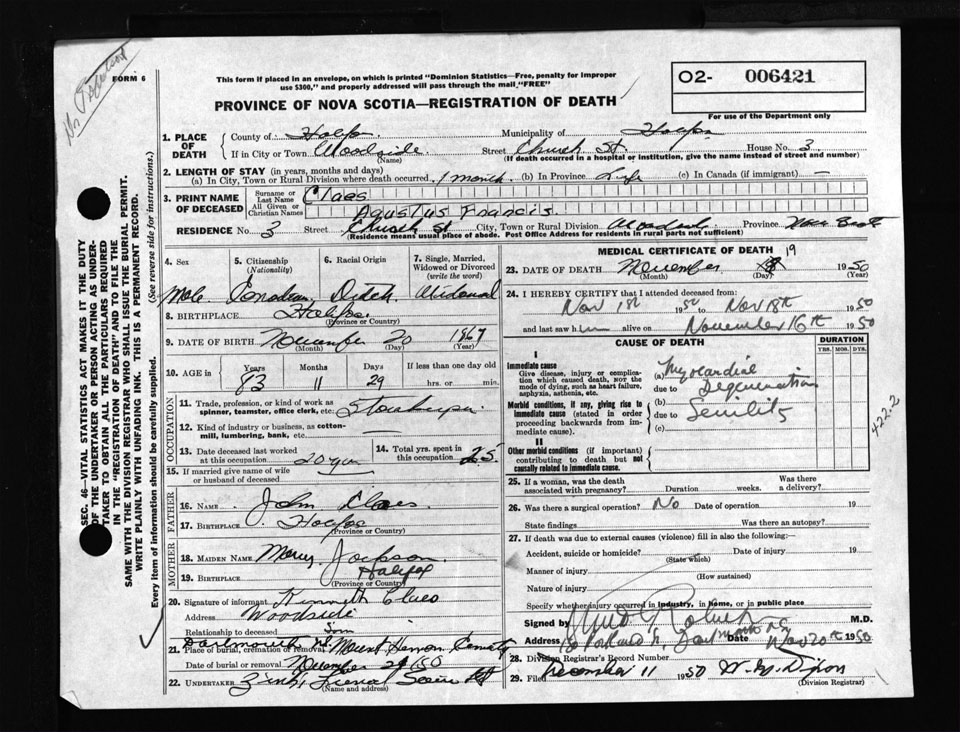 FORM 6
This form if placed in an envelope, on which is printed "Dominion Statistics—Free, penalty for improper
use $300," and properly addressed will pass through the mail "FREE"
PROVINCE OF NOVA SCOTIA—REGISTRATION OF DEATH
O2- 006421
For use of the Department only
SEC. 46—VITAL STATISTICS ACT MAKES IT THE DUTY
OF THE UNDERTAKER OR PERSON ACTING AS UNDER-
TAKER TO OBTAIN ALL THE PARTICULARS REQUIRED
IN THE "REGISTRATION OF DEATH" AND TO FILE THE
SAME WITH THE DIVISION REGISTRAR WHO SHALL ISSUE THE BURIAL PERMIT.
WRITE PLAINLY WITH UNFADING INK. THIS IS A PERMANENT RECORD.
Every item of information should be carefully supplied. (See reverse side for instructions.)
1. PLACE OF DEATH
County of Halfx Municipality of Halfx
If in City or Town Woodside Street Church St. House No. 3
(Name) (If death occurred in a hospital or institution, give the name instead of street and number)
2. LENGTH OF STAY (in years, months and days)
(a) In City, Town or Rural Division where death occurred 1 month (b) In Province Life (c) In Canada (if immigrant) —
3. PRINT NAME OF DECEASED
Surname or Last Name Claes
All Given or Christian Names Agustus Francis
RESIDENCE No. 3 Street Church St City, Town or Rural Division Woodside Province Nova Scotia
(Residence means usual place of abode. Post Office Address for residents in rural parts not sufficient)
4. Sex
5. Citizenship (Nationality)
6. Racial Origin
7. Single, Married, Widowed or Divorced (write the word)
Male Canadian Dutch Widowed
8. BIRTHPLACE Halfx
(Province or Country)
9. DATE OF BIRTH November 20 1867
(Month) (Day) (Year)
10. AGE in Years Months Days If less than one day old
83 11 29 hrs. or min.
OCCUPATION
11. Trade, profession, or kind of work as spinner, teamster, office clerk, etc. Storekeeper
12. Kind of industry or business, as cotton-mill, lumbering, bank, etc
13. Date deceased last worked at this occupation 20 yrs
14. Total yrs. spent in this occupation 25
15. If married give name of wife or husband of deceased
FATHER
16. NAME John Claes
17. BIRTHPLACE Halfx
MOTHER
18. MAIDEN NAME Mary Jackson
19. BIRTHPLACE Halifax
(Province or Country)
20. Signature of informant Kenneth Claes
Address Woodside
Relationship to deceased Son
21. Place of burial, cremation or removal Dartmouth Mount Hermon Cemetry
Date of burial or removal November 21/50
22. UNDERTAKER
(Name and address)
MEDICAL CERTIFICATE OF DEATH
23. DATE OF DEATH November 19 1950
(Month) (Day)
24. I HEREBY CERTIFY that I attended deceased from
Nov 1st 1950 to Nov 18th 1950
and last saw him alive on November 16th 1950
CAUSE OF DEATH
DURATION
YRS. MOS. DYS.
I
Immediate cause
Give disease, injury or complication which caused death, NOT the mode of dying, such as heart failure, asphyxia, asthenia, etc.
(a) Myocardial
due to Degeneration
Morbid conditions, if any, giving rise to immediate cause (stated in order proceeding backwards from immediate cause).
(b)
due to Senility
(c)
422.2
II
Other morbid conditions (if important) contributing to death but not causally related to immediate cause.
25. If a woman, was the death associated with pregnancy? Duration weeks. Was there a delivery?
26. Was there a surgical operation? No Date of operation 19
State findings Was there an autopsy?
27. If death was due to external causes (violence) fill in also the following:—
Accident, suicide or homicide? Date of injury 19
(State which)
Manner of injury
(How sustained)
Nature of injury
Specify whether injury occurred in industry, in home, or in public place
Signed by M.D.
Address Dartmouth NS Date Nov 20th 1950
28. Division Registrar's Record Number
29. Filed December 11 1950
(Division Registrar)